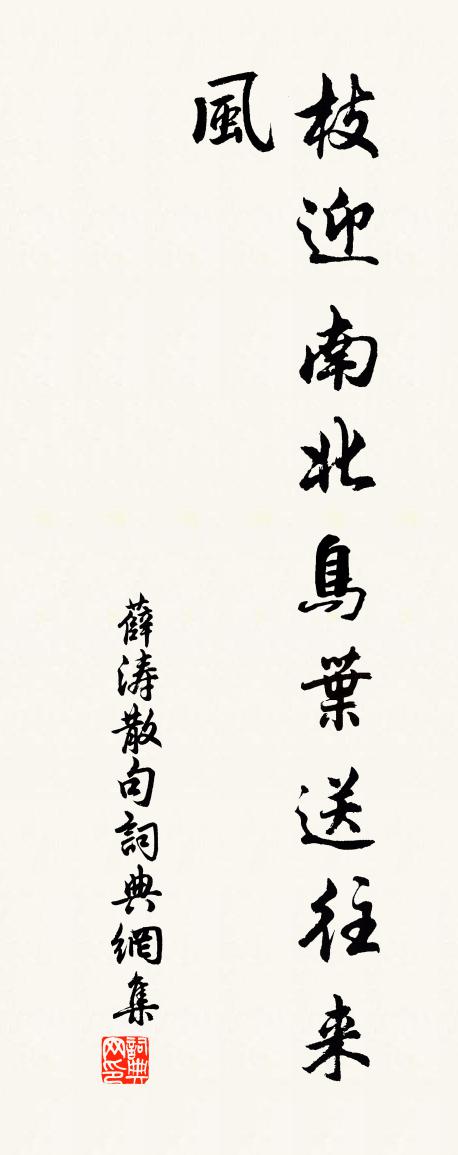 枝迎南北鳥葉送往来
風
薛涛散句詞典網集
詞典网印